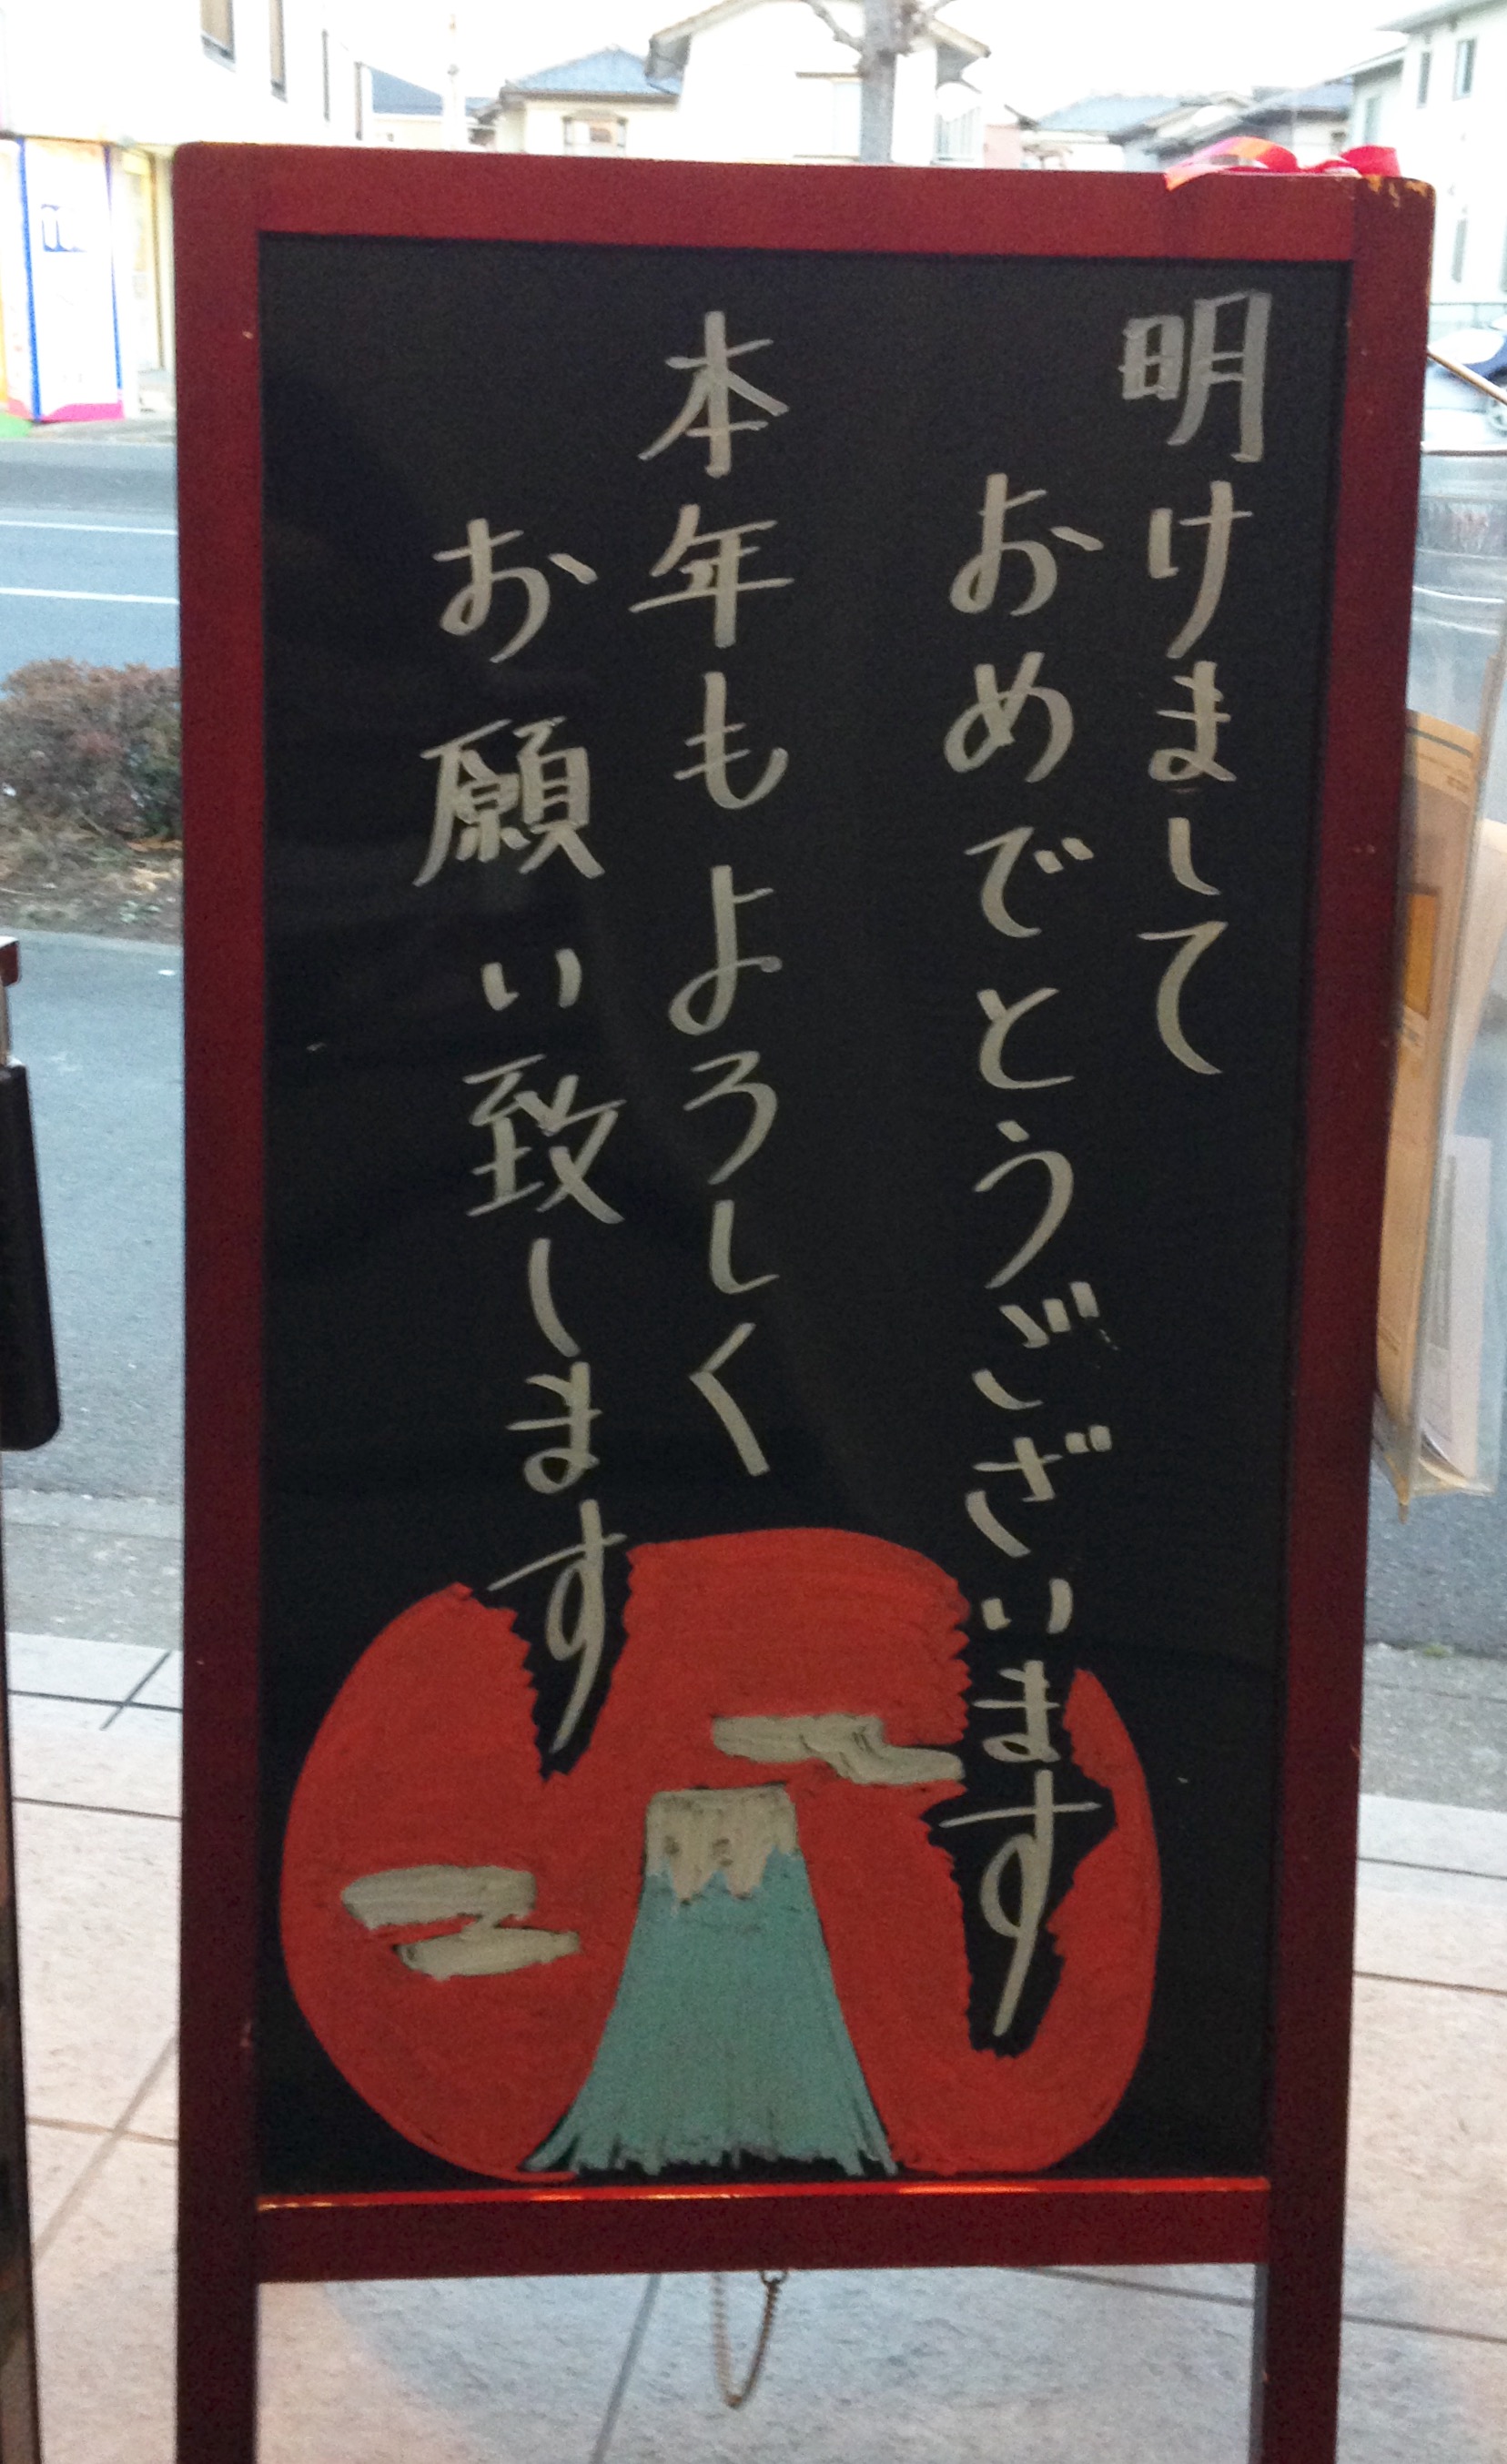 明けまして
おめでとうございます
本年もよろしく
お願い致します